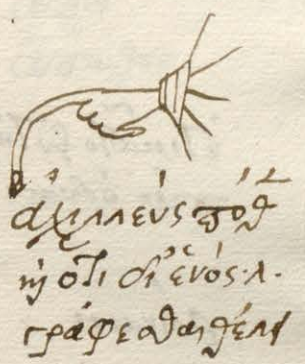 ἀχιλλεὺς πόθ
ἢ ὅτι δι' ἑνὸς ·λ·
γράφεσθαι θέλει